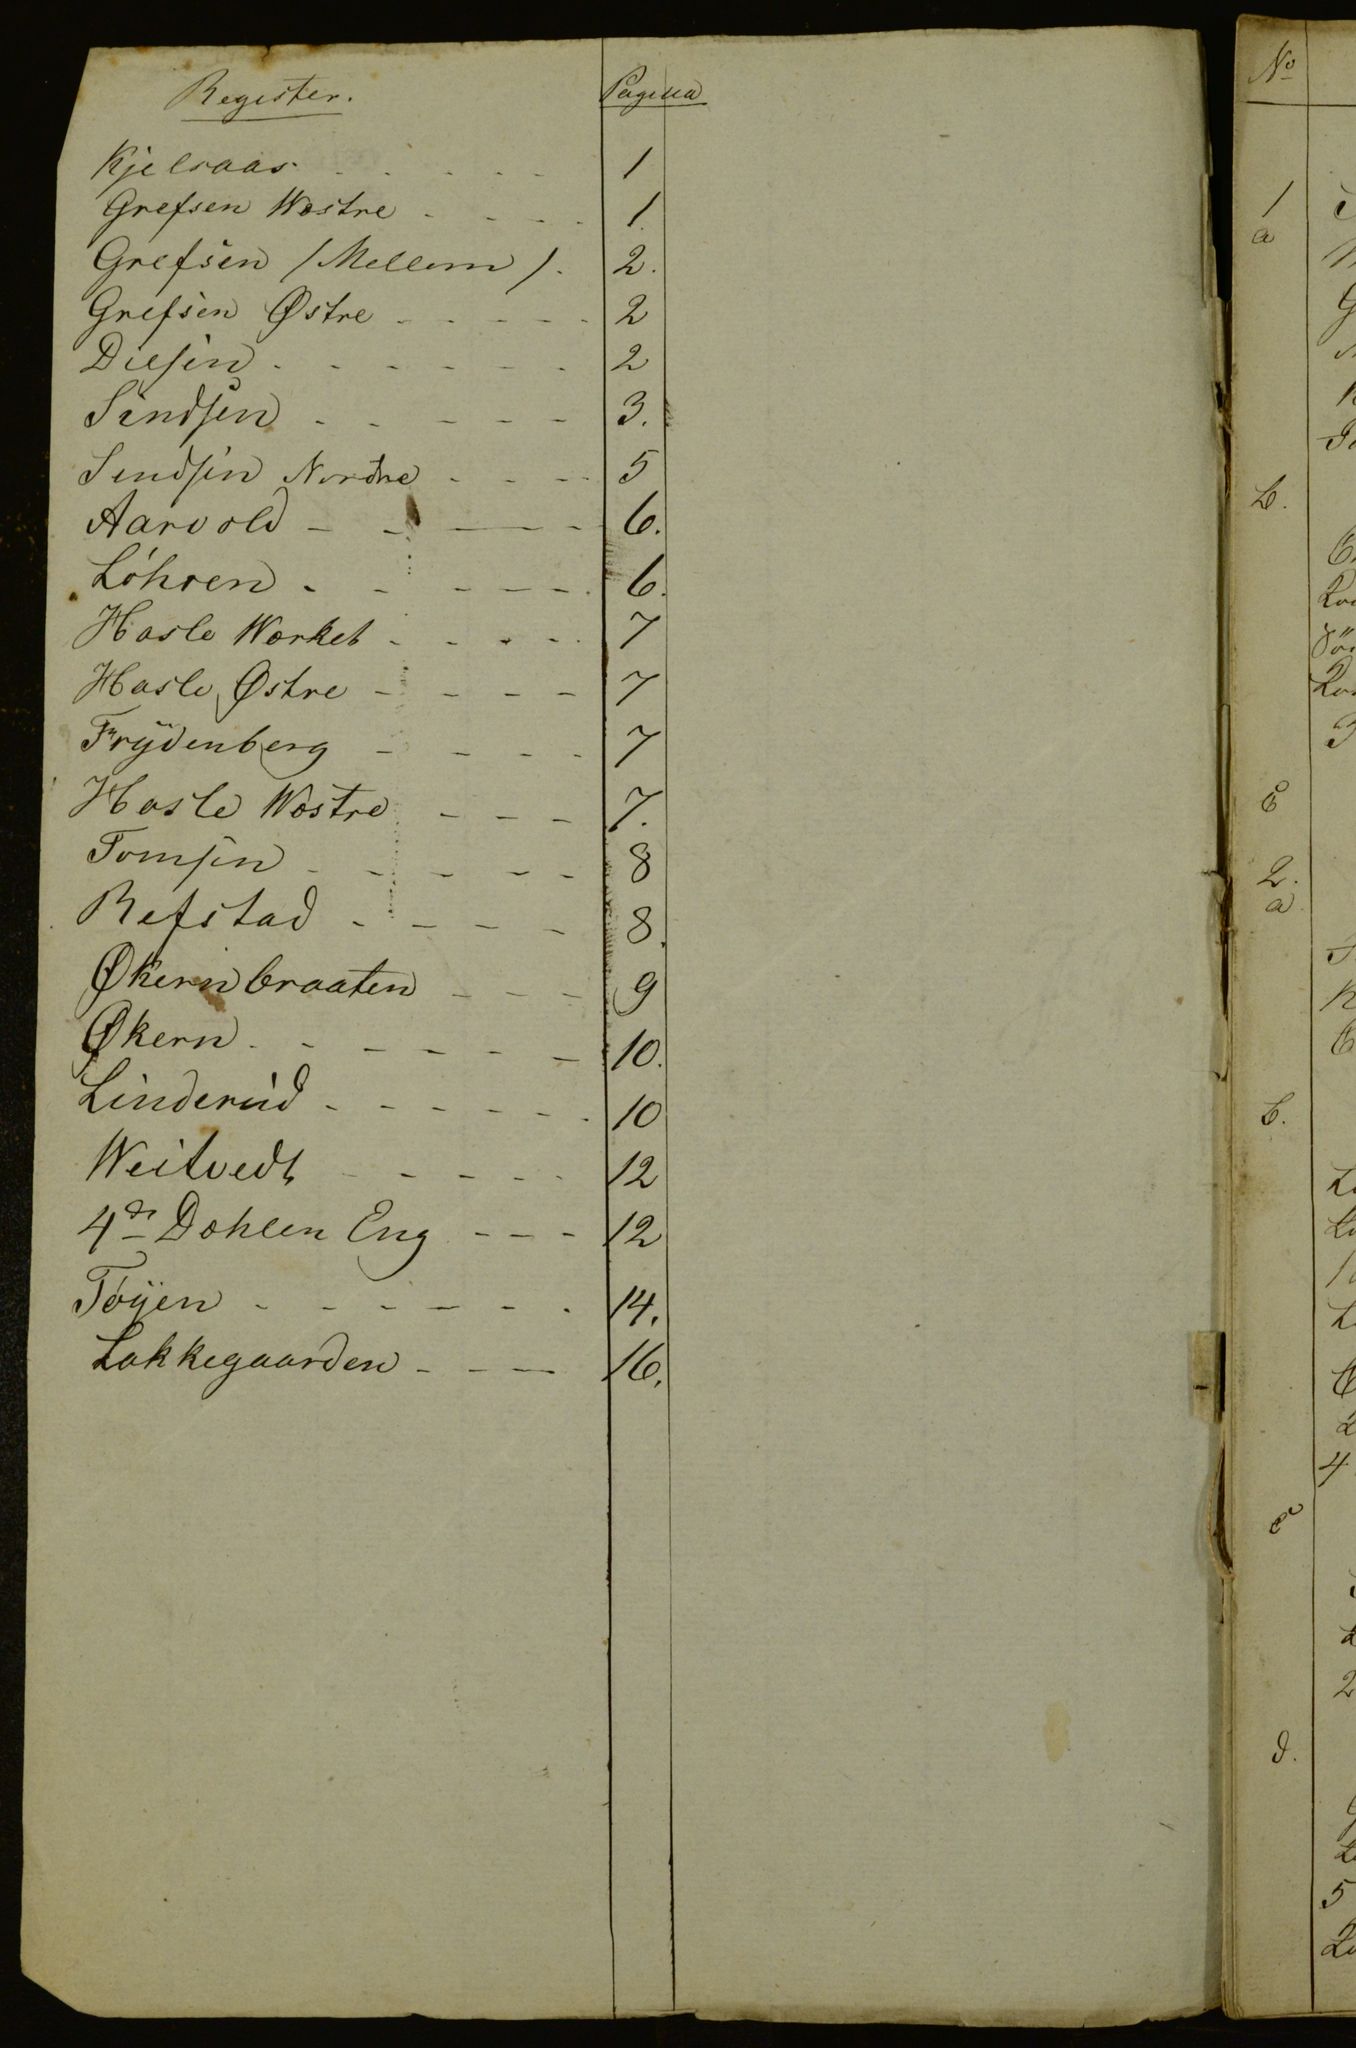 Register. Pagina
Kjelsaas - - - - - 1
Grefsen Wæstre - - - - 1.
Grefsen /Mellem/. 2.
Grefsen Østre - - - - - 2
Diesen - - - - - - 2
Sindsen - - - - - 3.
Sindsen Nordre - - - - 5
Aarvold - - - - - 6.
Løhren - - - - - - 6.
Hasle Wærket - - - - - 7
Hasle Østre - - - - - 7
Frÿdenberg - - - - - 7
Hasle Wæstre - - - - 7.
Tomsen - - - - - - 8
Refstad - - - - - 8.
Økern braaten - - - 9
Økern - - - - - - 10.
Linderud - - - - - - 10
Weitvedt - - - - - 12
4de Dæhlen Eng - - - 12
Tøÿen - - - - - - 14.
Lakkegaarden - - - 16.
No
1
a
b.
c
2.
a
b.
c
d.